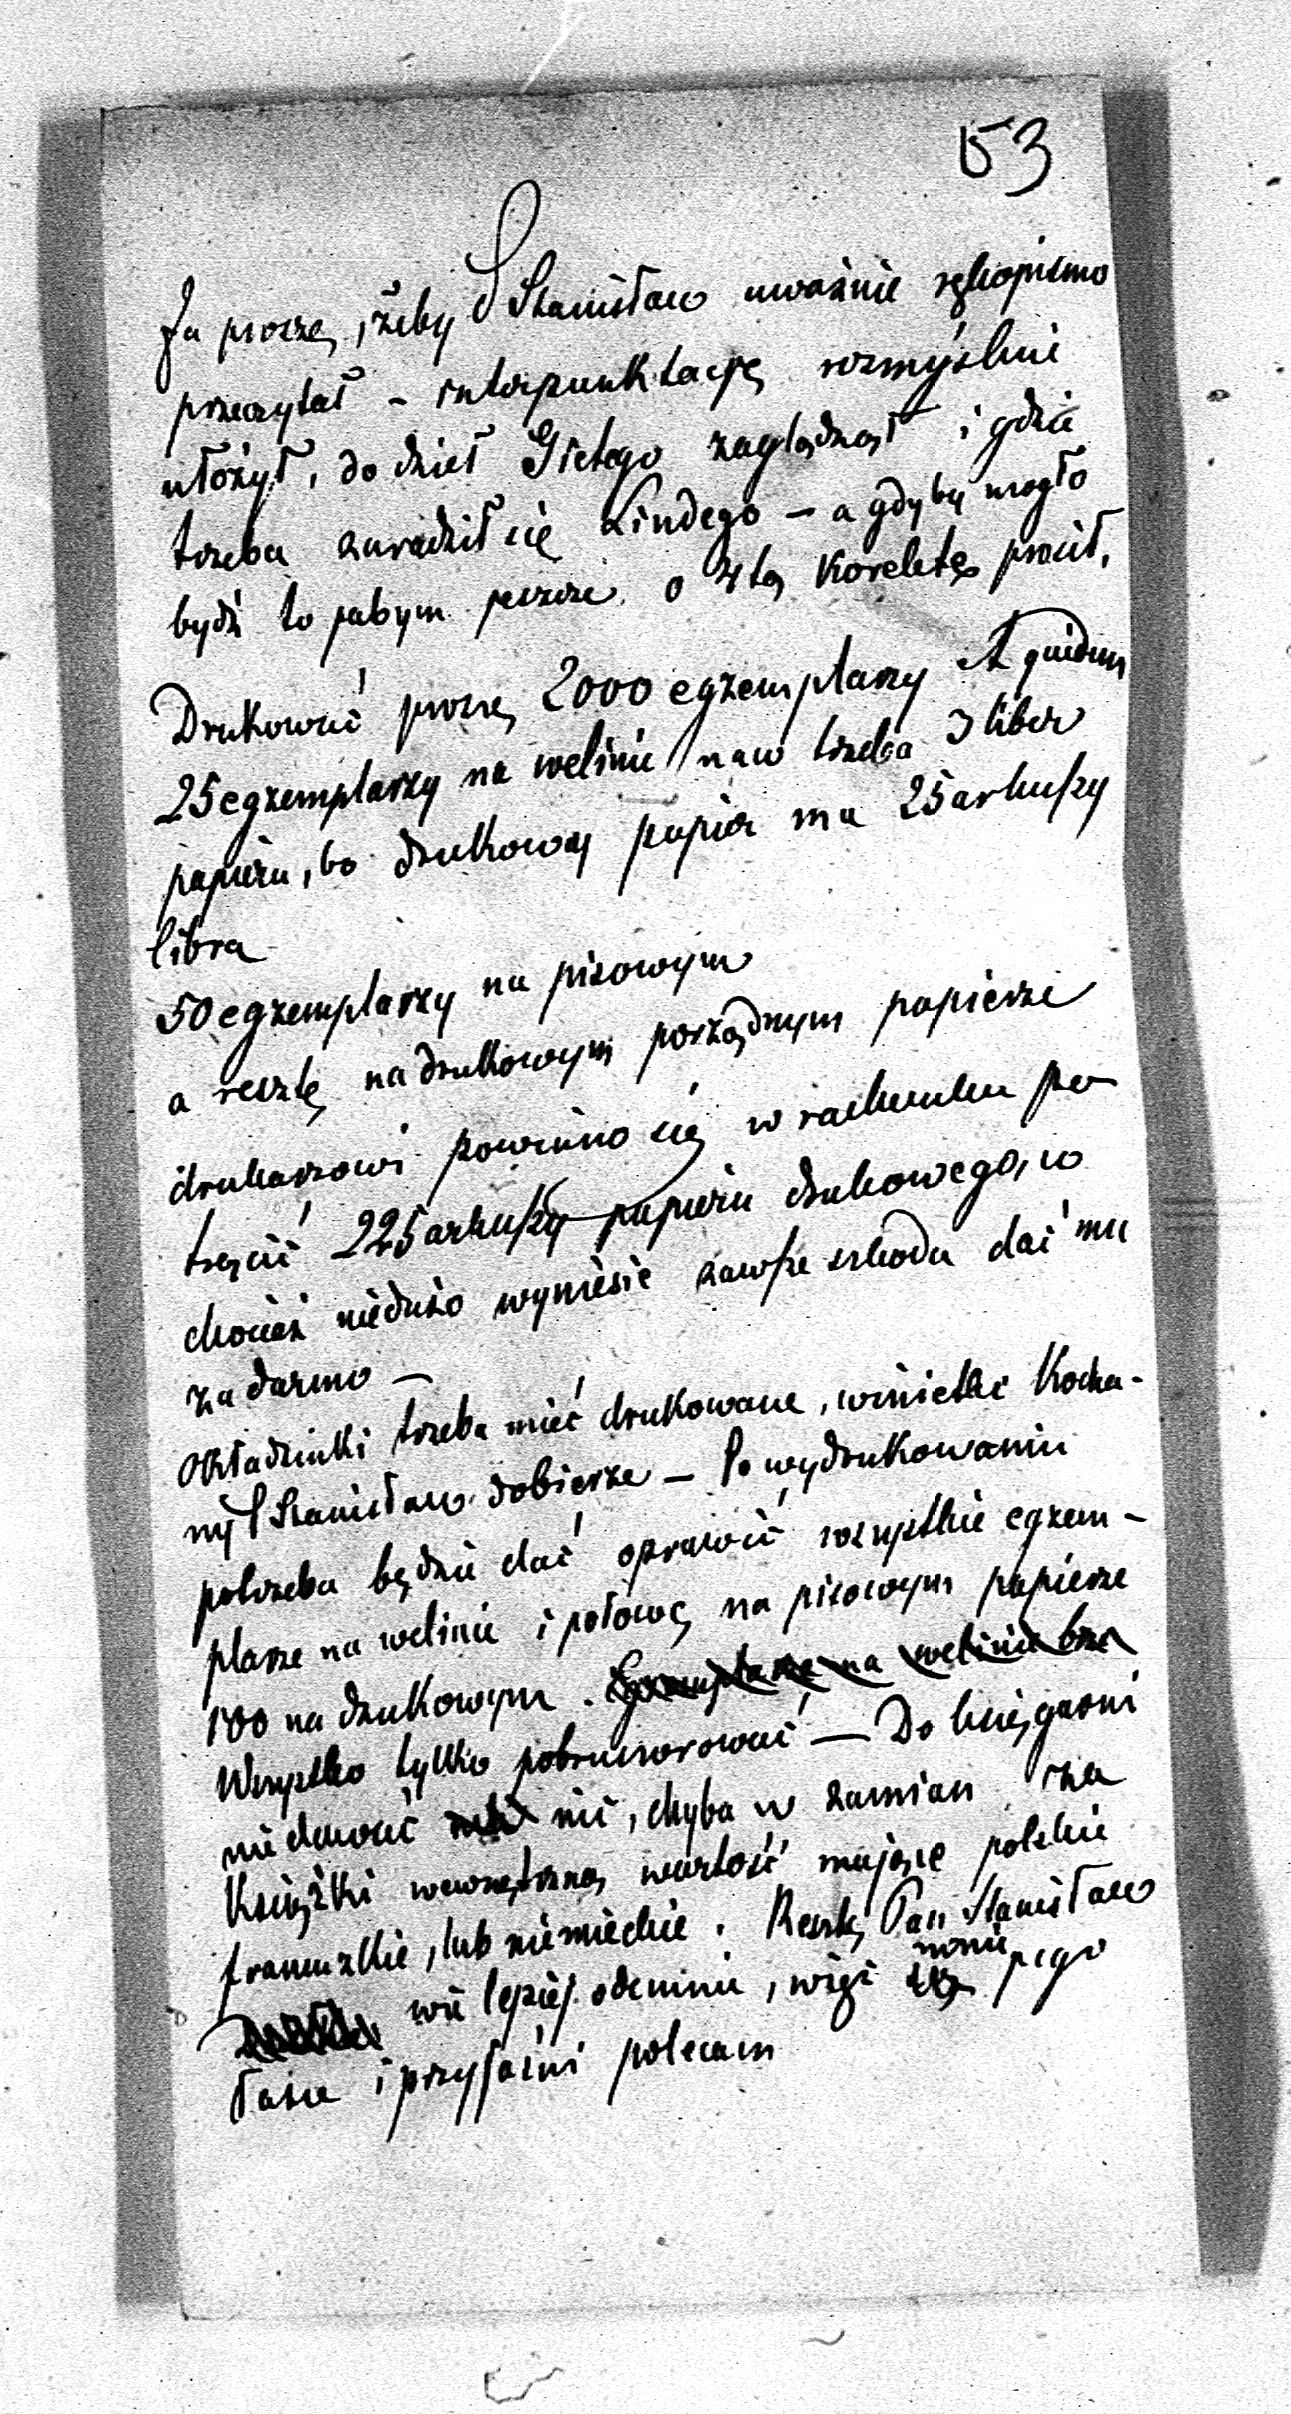 53
Ja proszę, żeby P Stanisław uważnie rękopismo
przeczytał – interpunktacyę rozmyślnie
ułożył, do dzieł Gietego zaglądzał i gdzie
trzeba zaradził się Lindego – a gdyby mogło
bydź to jabym jeszcze o 4tą korektę prosił.
Drukować proszę 2000 egzemplarzy A quidem
25 egzemplarzy na welinie naw trzeba 3 liber
papieru, bo drukowy papier ma 25 arkuszy
libra
50 egzemplarzy na pisowym
a resztę na drukowym porządnym papierze
drukarzowi powinno się w rachunku po
trącić 225 arkuszy papieru drukowego, co
chociaż niedużo wyniesie zawsze szkoda dać mu
za darmo –
Okładzinki trzeba mieć drukowane, winietkę Kocha-
ny P Stanisław dobierze – Po wydrukowaniu
potrzeba będzie dać oprawić wszystkie egzem-
plarze na welinie i połowę na pisowym papierze
100 na drukowym. Egzemplarze na welinie
Wszystko tylko pobruszorować – Do księgarni
nie dawać nic, chyba w zamian za
Książki wewnętrzną wartość mające polskie
francuzkie, lub niemieckie. Resztę Pan Stanisław
wie lepiej odemnie, więc mnie jego
łasce i przyjaźni polecam